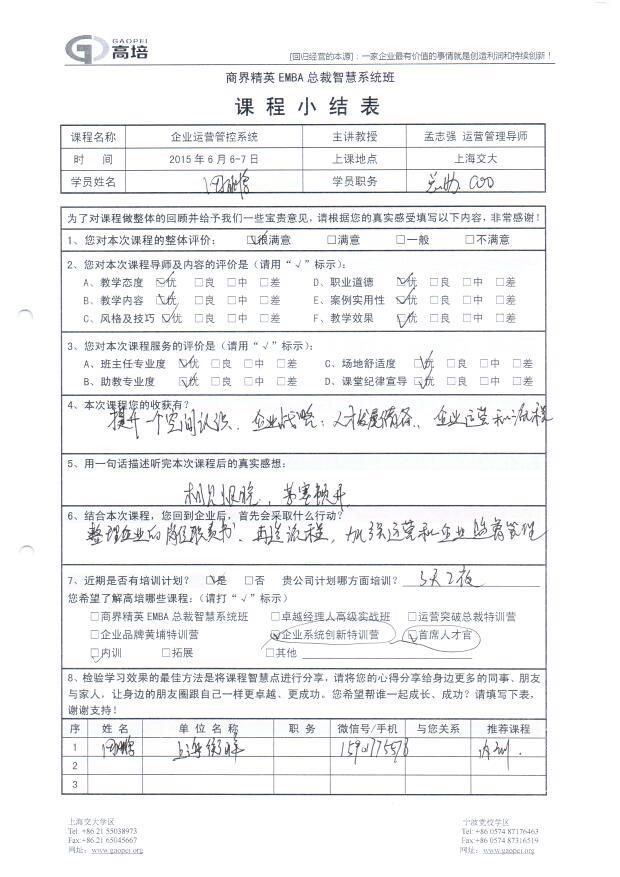 GAOPEI
高培
[回归经营的本源]：一家企业最有价值的事情就是创造利润和持续创新！
商界精英EMBA总裁智慧系统班
课程小结表
课程名称 企业运营管控系统 主讲教授 孟志强 运营管理导师
时 间 2015年6月6-7日 上课地点 上海交大
学员姓名 学员职务 总助 COO
为了对课程做整体的回顾并给予我们一些宝贵意见，请根据您的真实感受填写以下内容，非常感谢！
1、您对本次课程的整体评价： ☑很满意 □满意 □一般 □不满意
2、您对本次课程导师及内容的评价是（请用“√”标示）：
A、教学态度 ☑优 □良 □中 □差 D、职业道德 ☑优 □良 □中 □差
B、教学内容 ☑优 □良 □中 □差 E、案例实用性 ☑优 □良 □中 □差
C、风格及技巧 ☑优 □良 □中 □差 F、教学效果 ☑优 □良 □中 □差
3、您对本次课程服务的评价是（请用“√”标示）：
A、班主任专业度 ☑优 □良 □中 □差 C、场地舒适度 ☑优 □良 □中 □差
B、助教专业度 ☑优 □良 □中 □差 D、课堂纪律宣导 ☑优 □良 □中 □差
4、本次课程您的收获有？
提升一个空间认识、企业战略；人才发展储备、企业运营和流程
5、用一句话描述听完本次课程后的真实感想：
相见恨晚，茅塞顿开
6、结合本次课程，您回到企业后，首先会采取什么行动？
整理企业的岗位职责书、再造流程，加强运营和企业监督管理
7、近期是否有培训计划？ ☑是 □否 贵公司计划哪方面培训？ 3天2夜
您希望了解高培哪些课程：（请打“√”标示）
□商界精英EMBA总裁智慧系统班 □卓越经理人高级实战班 □运营突破总裁特训营
□企业品牌黄埔特训营 ☑企业系统创新特训营 ☑首席人才官
☑内训 □拓展 □其他
8、检验学习效果的最佳方法是将课程智慧点进行分享，请将您的心得分享给身边更多的同事、朋友
与家人，让身边的朋友圈跟自己一样更卓越、更成功。您希望帮谁一起成长、成功？请填写下表，
谢谢支持！
序 姓 名 单 位 名 称 职 务 微信号/手机 与您关系 推荐课程
1 上海 内训.
2
3
上海交大学区 宁波党校学区
Tel: +86 21 55038973 Tel: +86 0574 87176463
Fax:+86 21 65045667 Fax:+86 0574 87316519
网址：www.gaopei.org 网址：www.gaopei.org